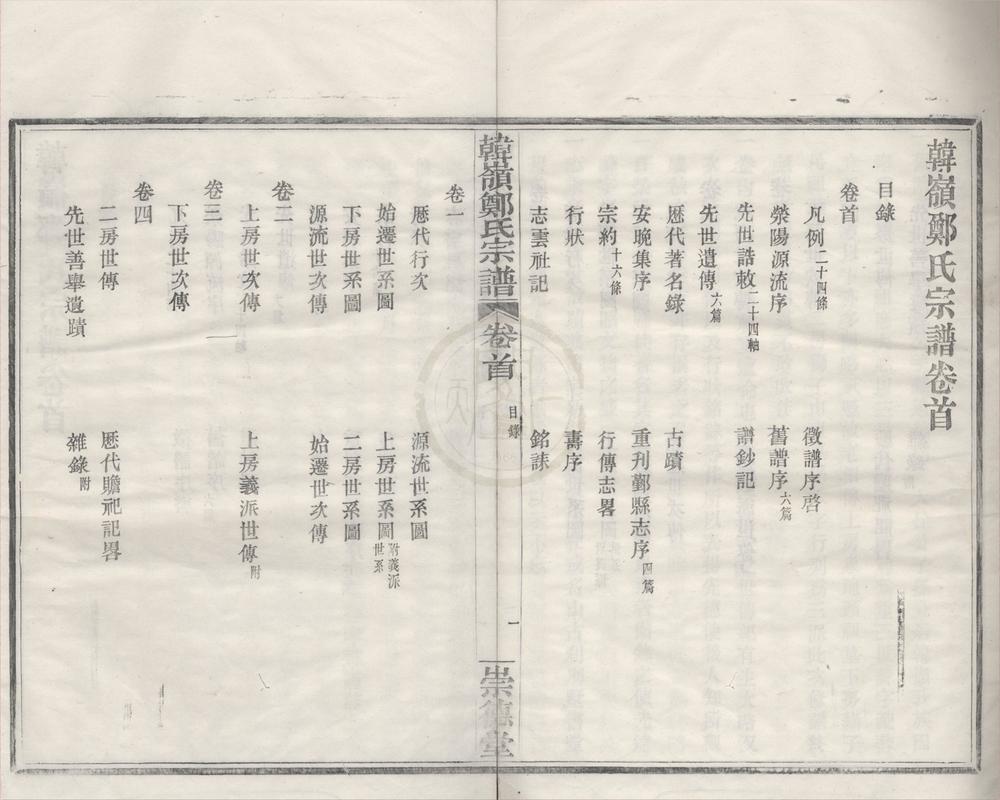 韓嶺鄭氏宗譜卷首
目錄
卷首
凡例二十四條 徵譜序啓
滎陽源流序 舊譜序六篇
先世誥敕二十四軸 譜鈔記
先世遺傳六篇
歷代著名錄 古蹟
安晚集序 重刋鄞縣志序四篇
宗約十六條 行傳志畧
行狀 壽序
志雲祉記 銘誄
韓嶺鄭氏宗譜 卷首 目錄 一 崇德堂
卷一
歷代行次 源流世系圖
始遷世系圖 上房世系圖附義派世系
下房世系圖 二房世系圖
源流世次傳 始遷世次傳
卷二
上房世次傳 上房義派世傳附
卷三
下房世次傳
卷四
二房世傳 歷代贍祀記畧
先世善舉遺蹟 雜錄附